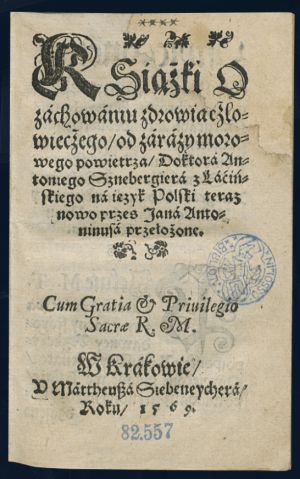 KSiąszki O
záchowániu zdrowia cżło-
wiecżego/ od záráży moro-
wego powietrza/ Doktorá An-
toniego Sznebergierá z Láciń-
skiego ná ięzyk Polski teraz
nowo przes Janá Anto-
ninusá przełożone.
Cum Gratia & Priuilegio
Sacræ R. M.
W Krákowie/
V Máttheuszá Siebeneycherá/
Roku/ 1569.
82.557